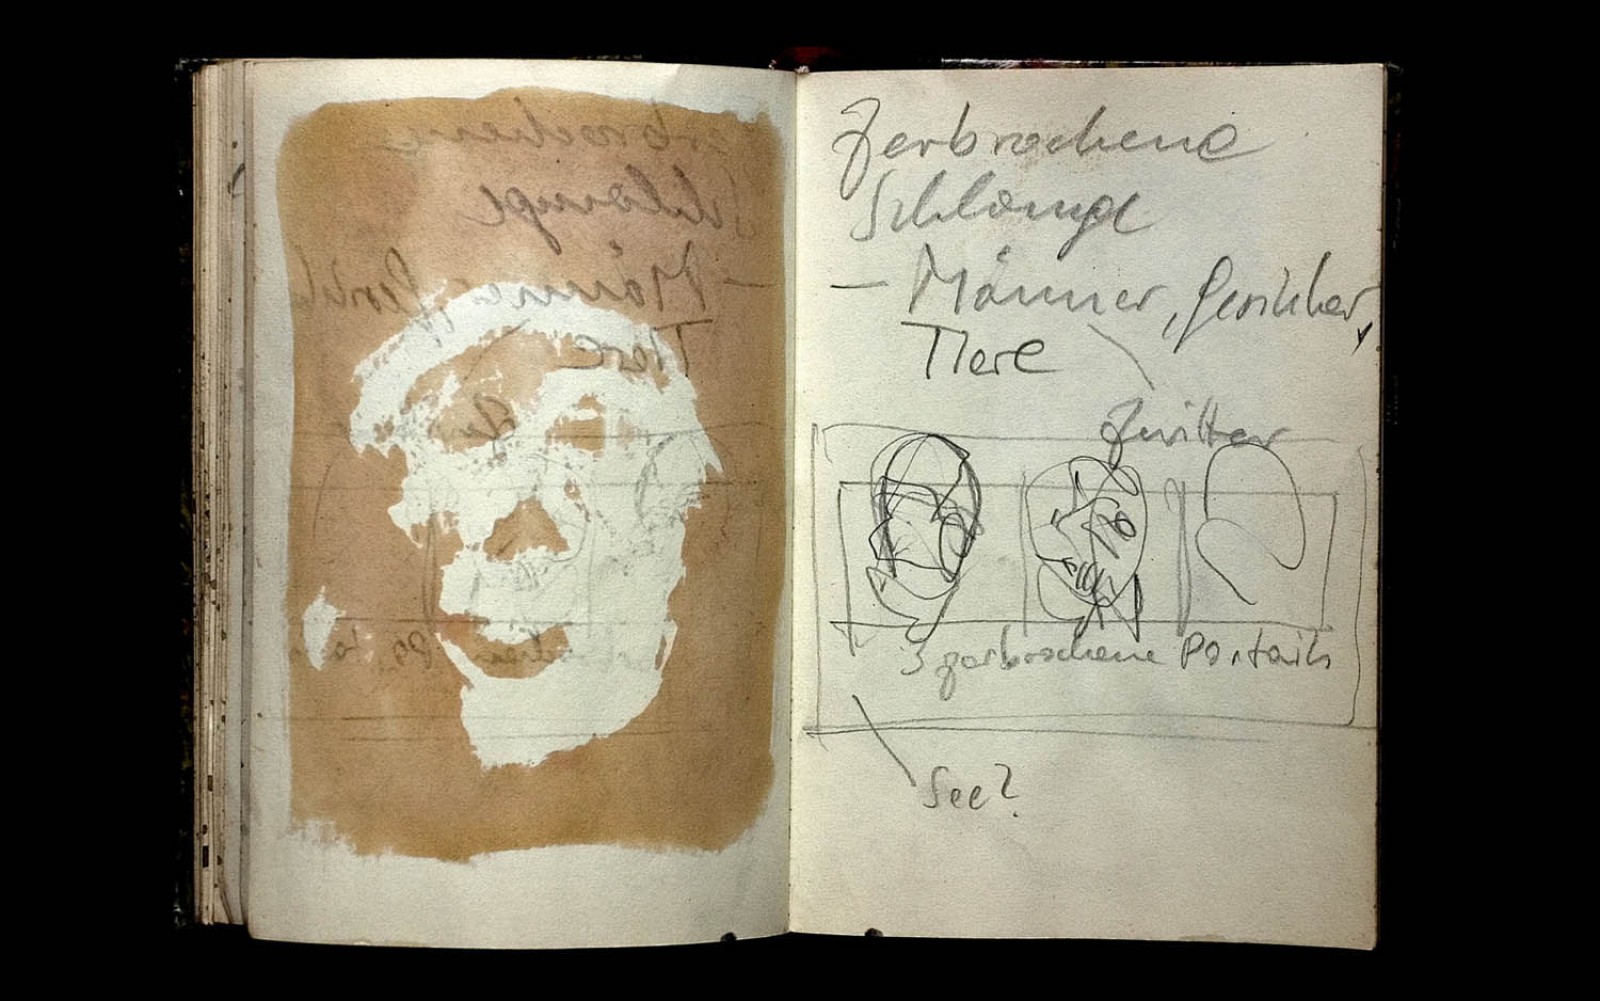 Zerbrochene
Schlange
– Männer, Gesichter,
Tiere
Zwitter
3 zerbrochene Portraits
See?